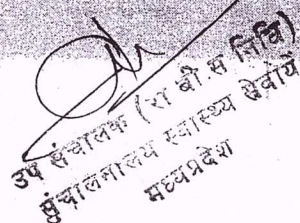 उप संचालक (रा बी स निधि)
संचालनालय स्वास्थ्य सेवायें
मध्यप्रदेश